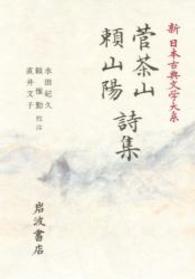 新 日本古典文学大系
菅茶山 詩集
頼山陽
水田紀久
頼 惟勤 校注
直井文子
岩波書店